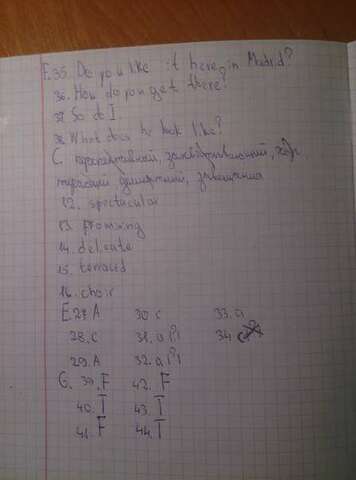 E.35. Do you like it here in Madrid?
36. How do you get there?
37. So do I.
38. What does he look like?
C. эффективный, захватывающий, хор,
деликатный,
12. spectacular
13. promising
14. delicate
15. terraced
16. choir
E.27. A 30 c 33. a
28. C 31. a (?) 34.
29. A 32. a (?)
G. 39. F 42. F
40. T 43. T
41. F 44. T